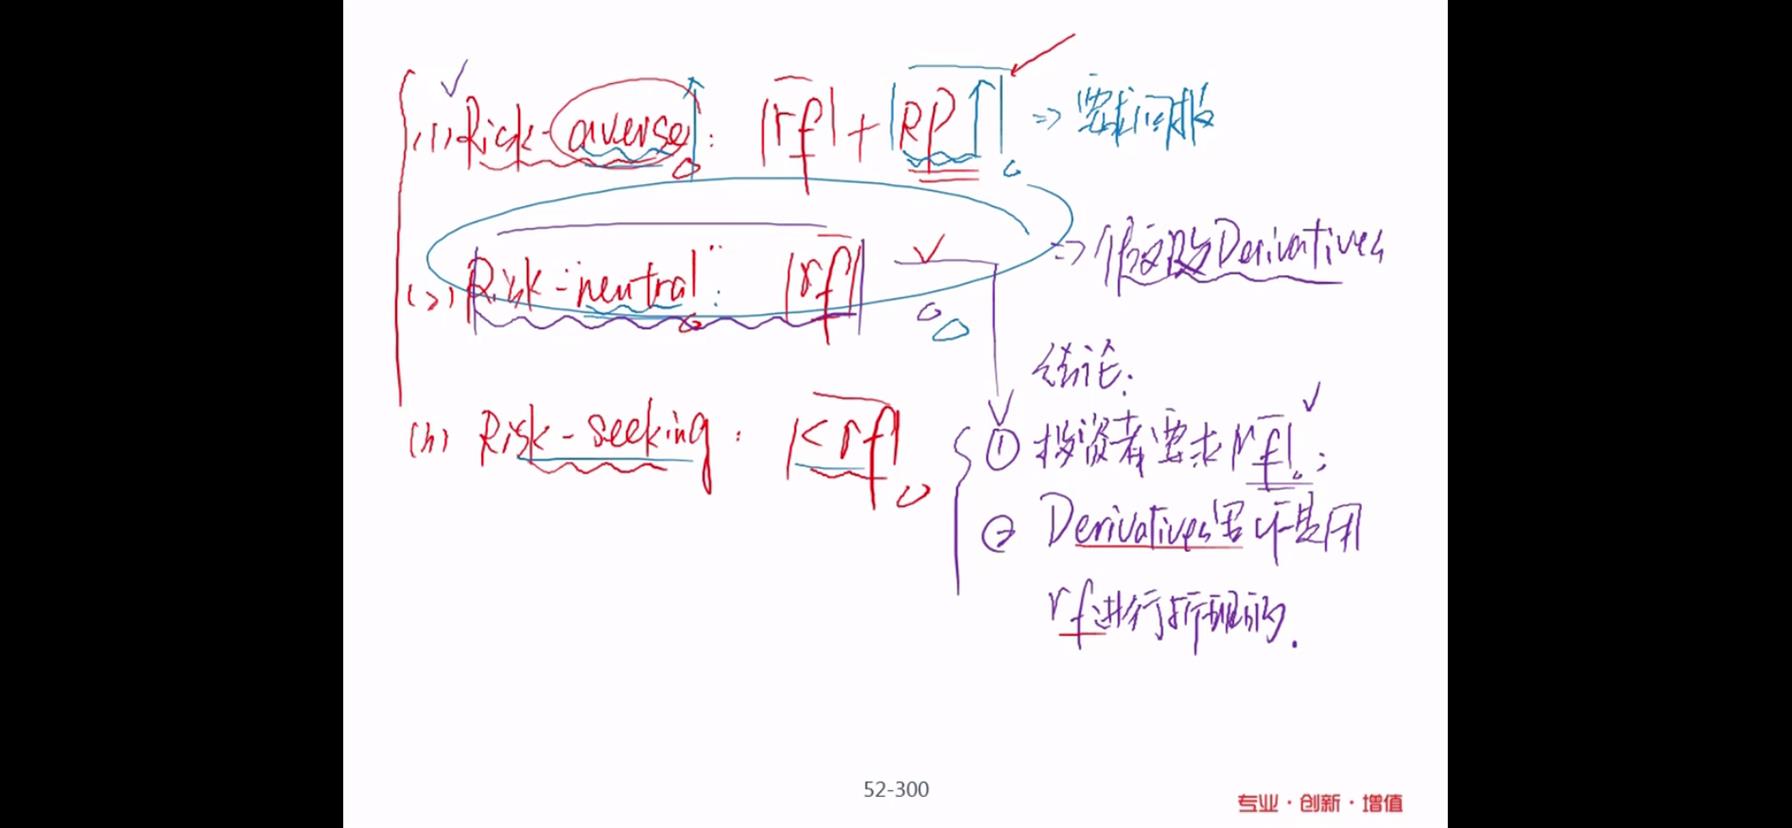 (1) Risk-averse: rf + RP↑ => 要求回报
(2) Risk-"neutral": rf => 假设 Derivatives
结论:
(3) Risk-seeking: <rf
① 投资者要求rf;
② Derivatives 都是用
rf进行折现的.
52-300
专业·创新·增值